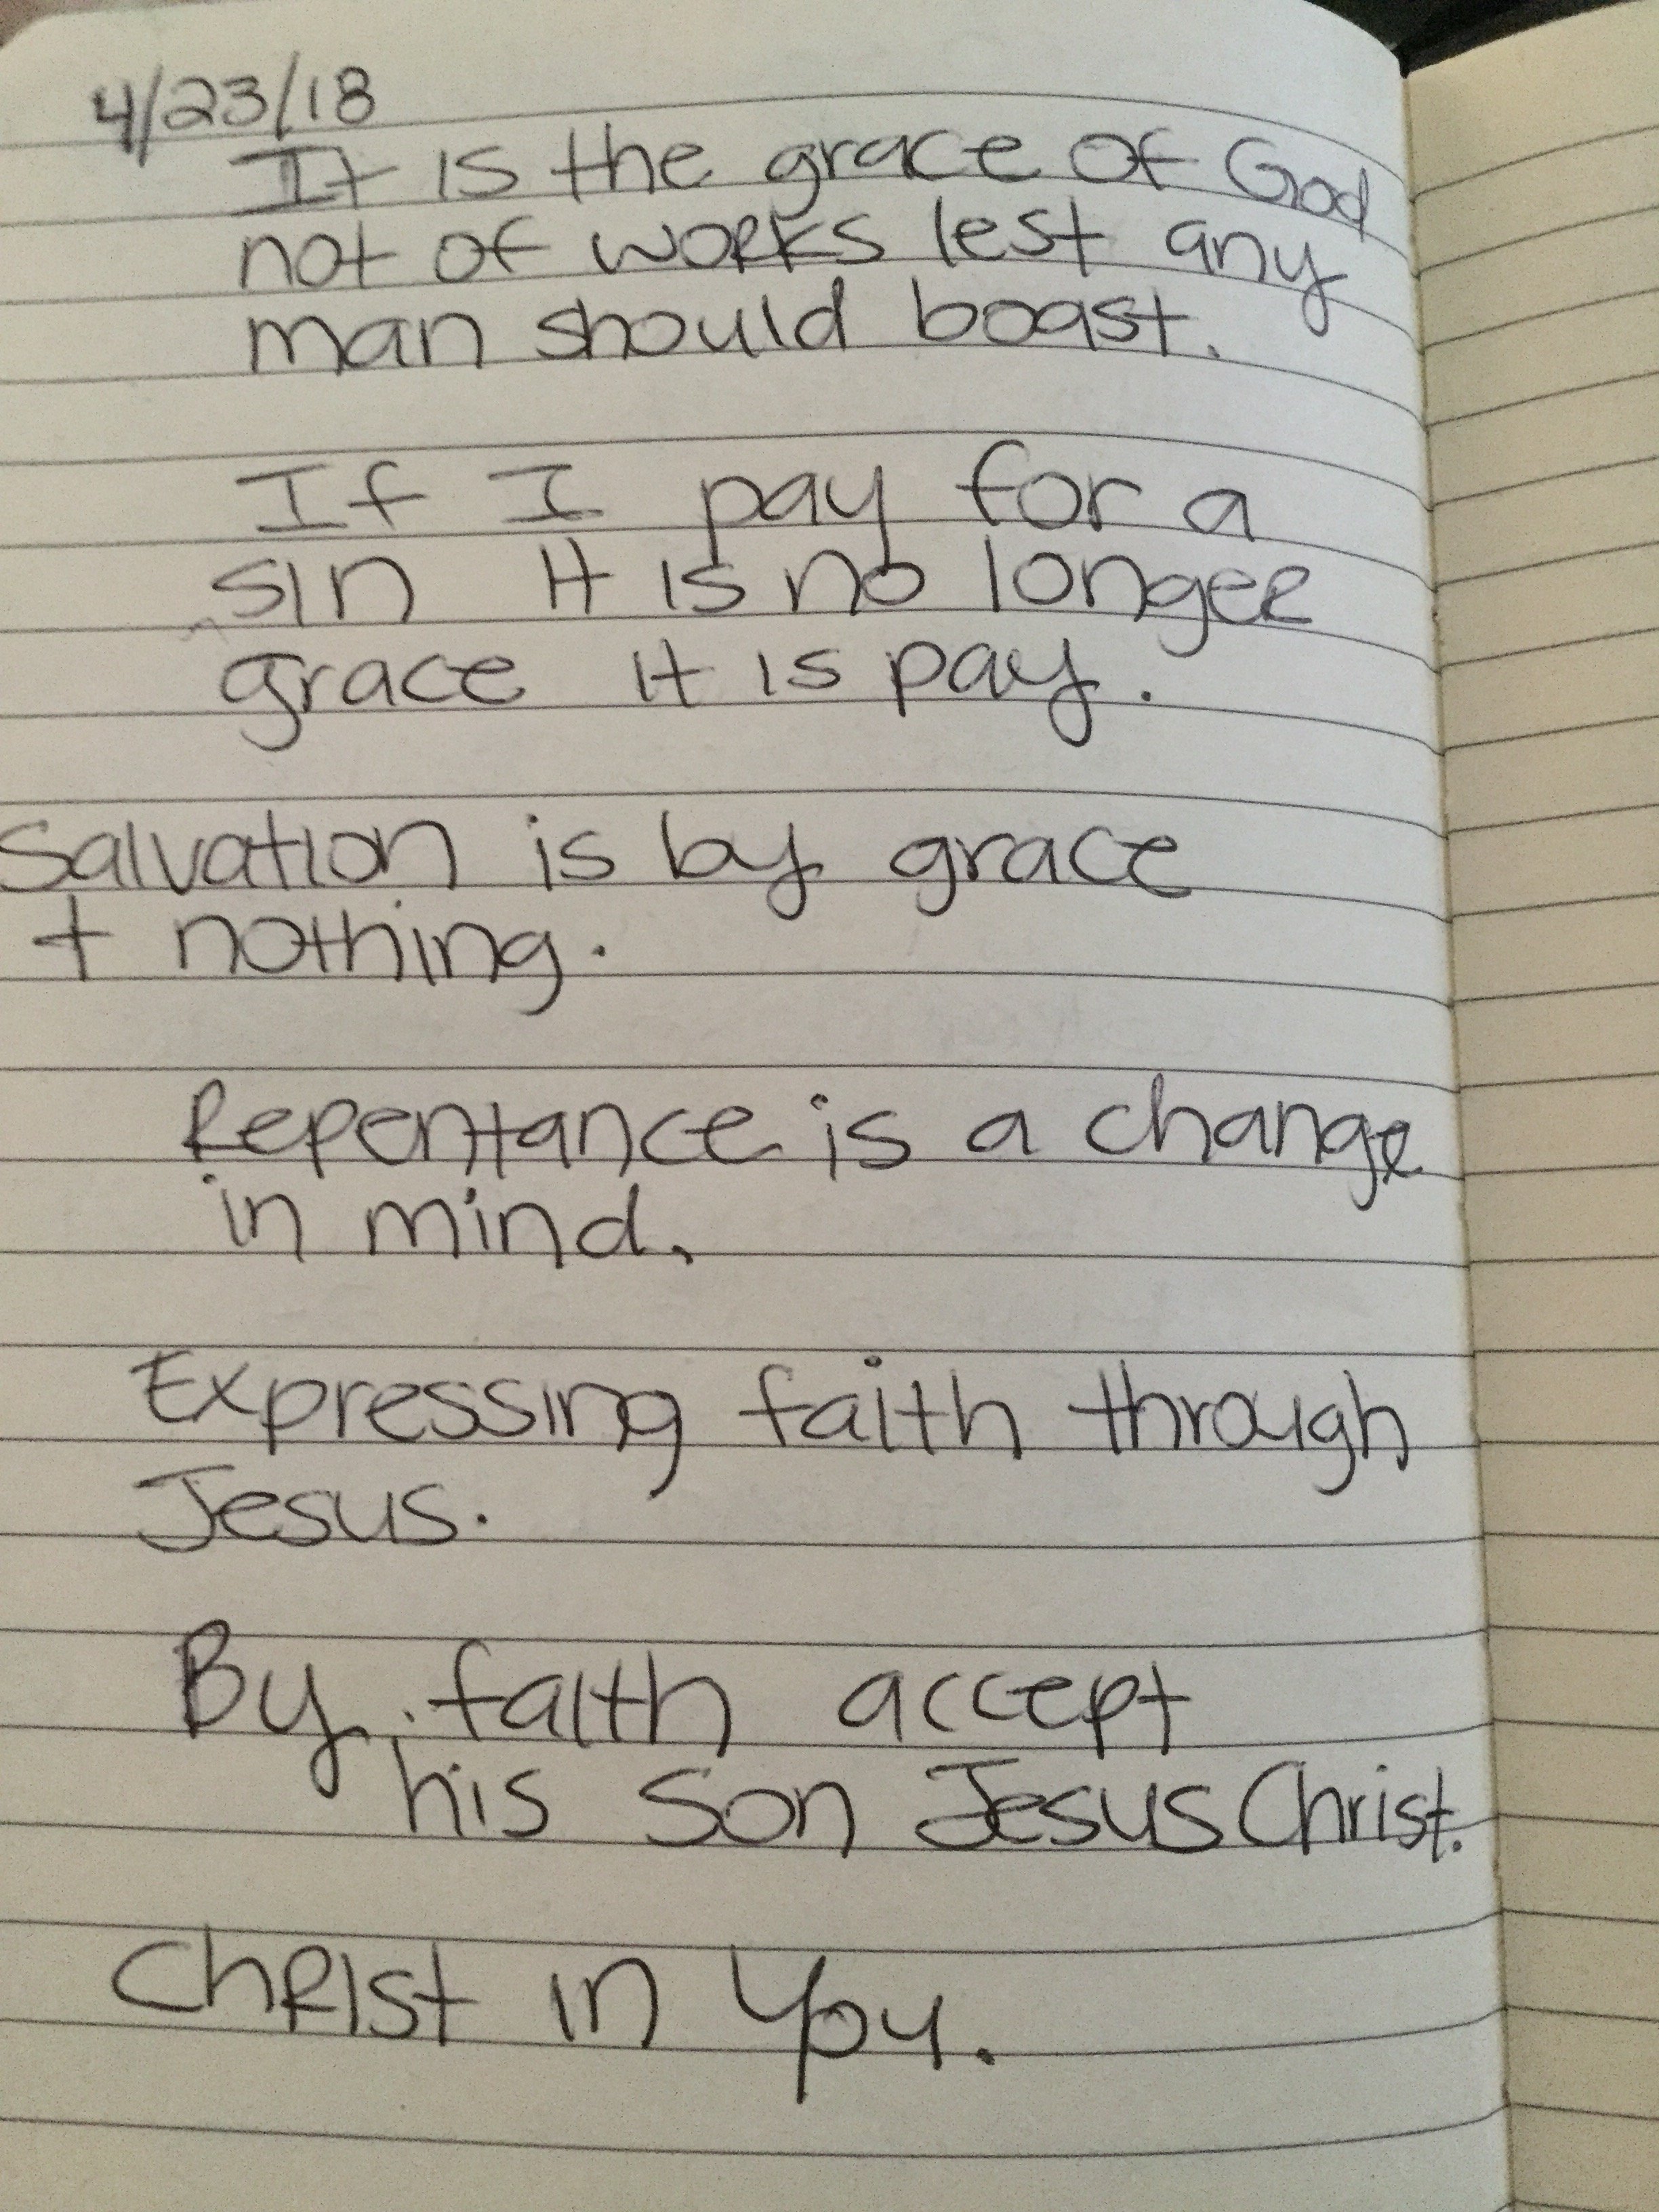 4/23/18
It is the grace of God
not of works lest any
man should boast.
If I pay for a
sin it is no longer
grace it is pay.
Salvation is by grace
+ nothing.
Repentance is a change
in mind.
Expressing faith through
Jesus.
By faith accept
his son Jesus Christ.
Christ in you.